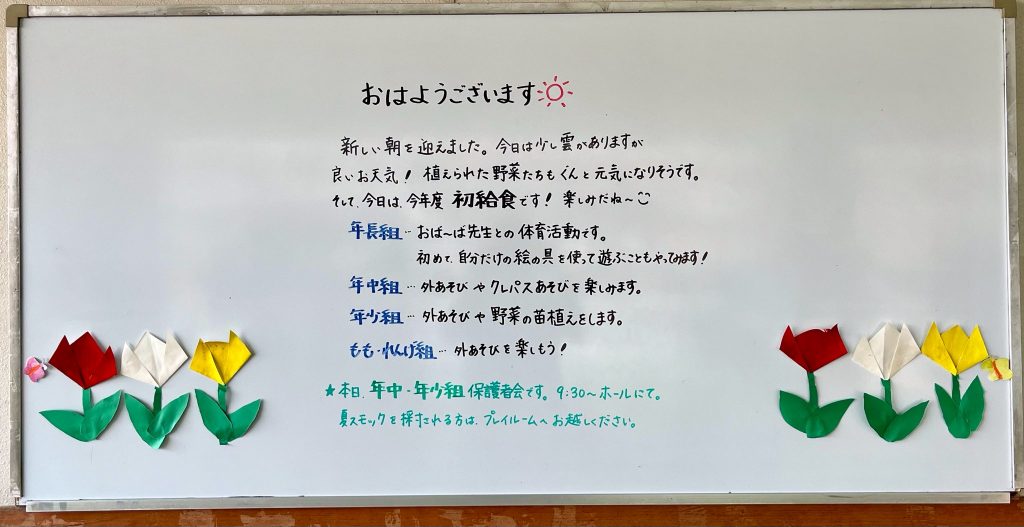 おはようございます
新しい朝を迎えました。今日は少し雲がありますが
良いお天気! 植えられた野菜たちもぐんと元気になりそうです。
そして、今日は、今年度 初給食です! 楽しみだね〜
年長組…おば〜ば先生との体育活動です。
初めて、自分だけの絵の具を使って遊ぶこともやってみます!
年中組…外あそびやクレパスあそびを楽しみます。
年少組…外あそびや野菜の苗植えをします。
もも・れんげ組…外あそびを楽しもう!
★本日、年中・年少組保護者会です。9:30〜ホールにて。
夏スモックを採寸される方は、プレイルームへお越しください。